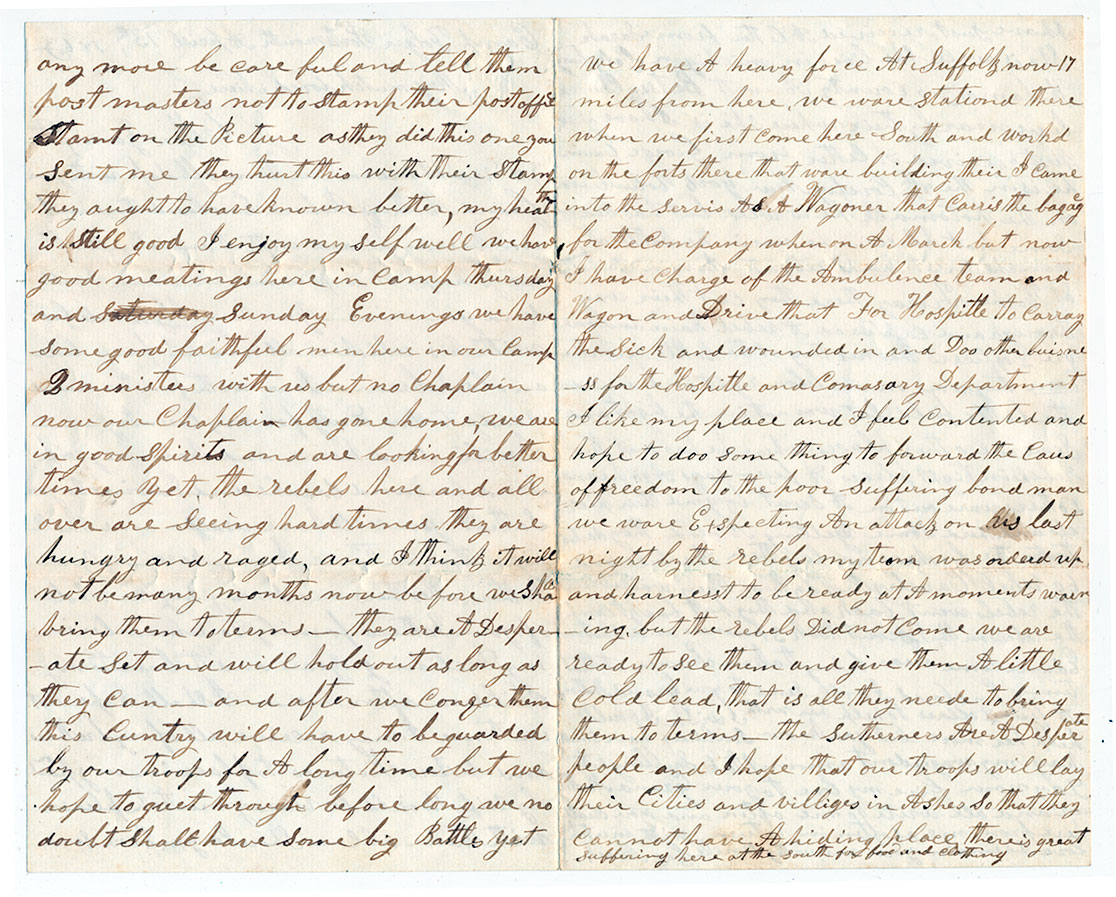 any more be care ful and tell them
post masters not to stamp their post office
Stamt on the Picture as they did this one you
sent me they hurt this with their Stamp
they aught to have known better, my health
is still good I enjoy my self well we have
good meatings here in Camp thursday
and Saturday Sunday Evenings we have
some good faithful men here in our Camp
2 ministers with us but no Chaplain
now our Chaplain has gone home, we are
in good spirits and are looking for better
times yet, the rebels here and all
over are seeing hard times they are
hungry and raged, and I think it will
not be many months now before we shall
bring them to terms — they are A Desper-
-ate Set and will hold out as long as
they Can — and after we Conger them
this Cuntry will have to be guarded
by our troops for A long time but we
hope to guet through before long we no
doubt Shall have some big Battles yet
we have A heavy force At Suffolk now 17
miles from here, we ware stationd there
when we first come here South and workd
on the forts there that ware building their I Came
into the servis As A Wagoner that Carris the bagag
for the Company when on A March but now
I have Charge of the Ambulence team and
Wagon and Drive that For Hospitle to Carray
the Sick and wounded in and Doo other buisne
-ss for the Hospitle and Comasary Department
I like my place and I feel Contented and
hope to doo some thing to forward the Caus
of freedom to the poor suffering bond man
we ware Exspecting An attack on us last
night by the rebels my team was ordered up
and harnesst to be ready at A moments warn
-ing, but the rebels Did not Come we are
ready to see them and give them A little
Cold lead, that is all they neede to bring
them to terms — the Sutherners Are A Desperate
people and I hope that our troops will lay
their Cities and villiges in Ashes So that they
Cannot have A hiding place, there is great
suffering here at the South for food and Clothing